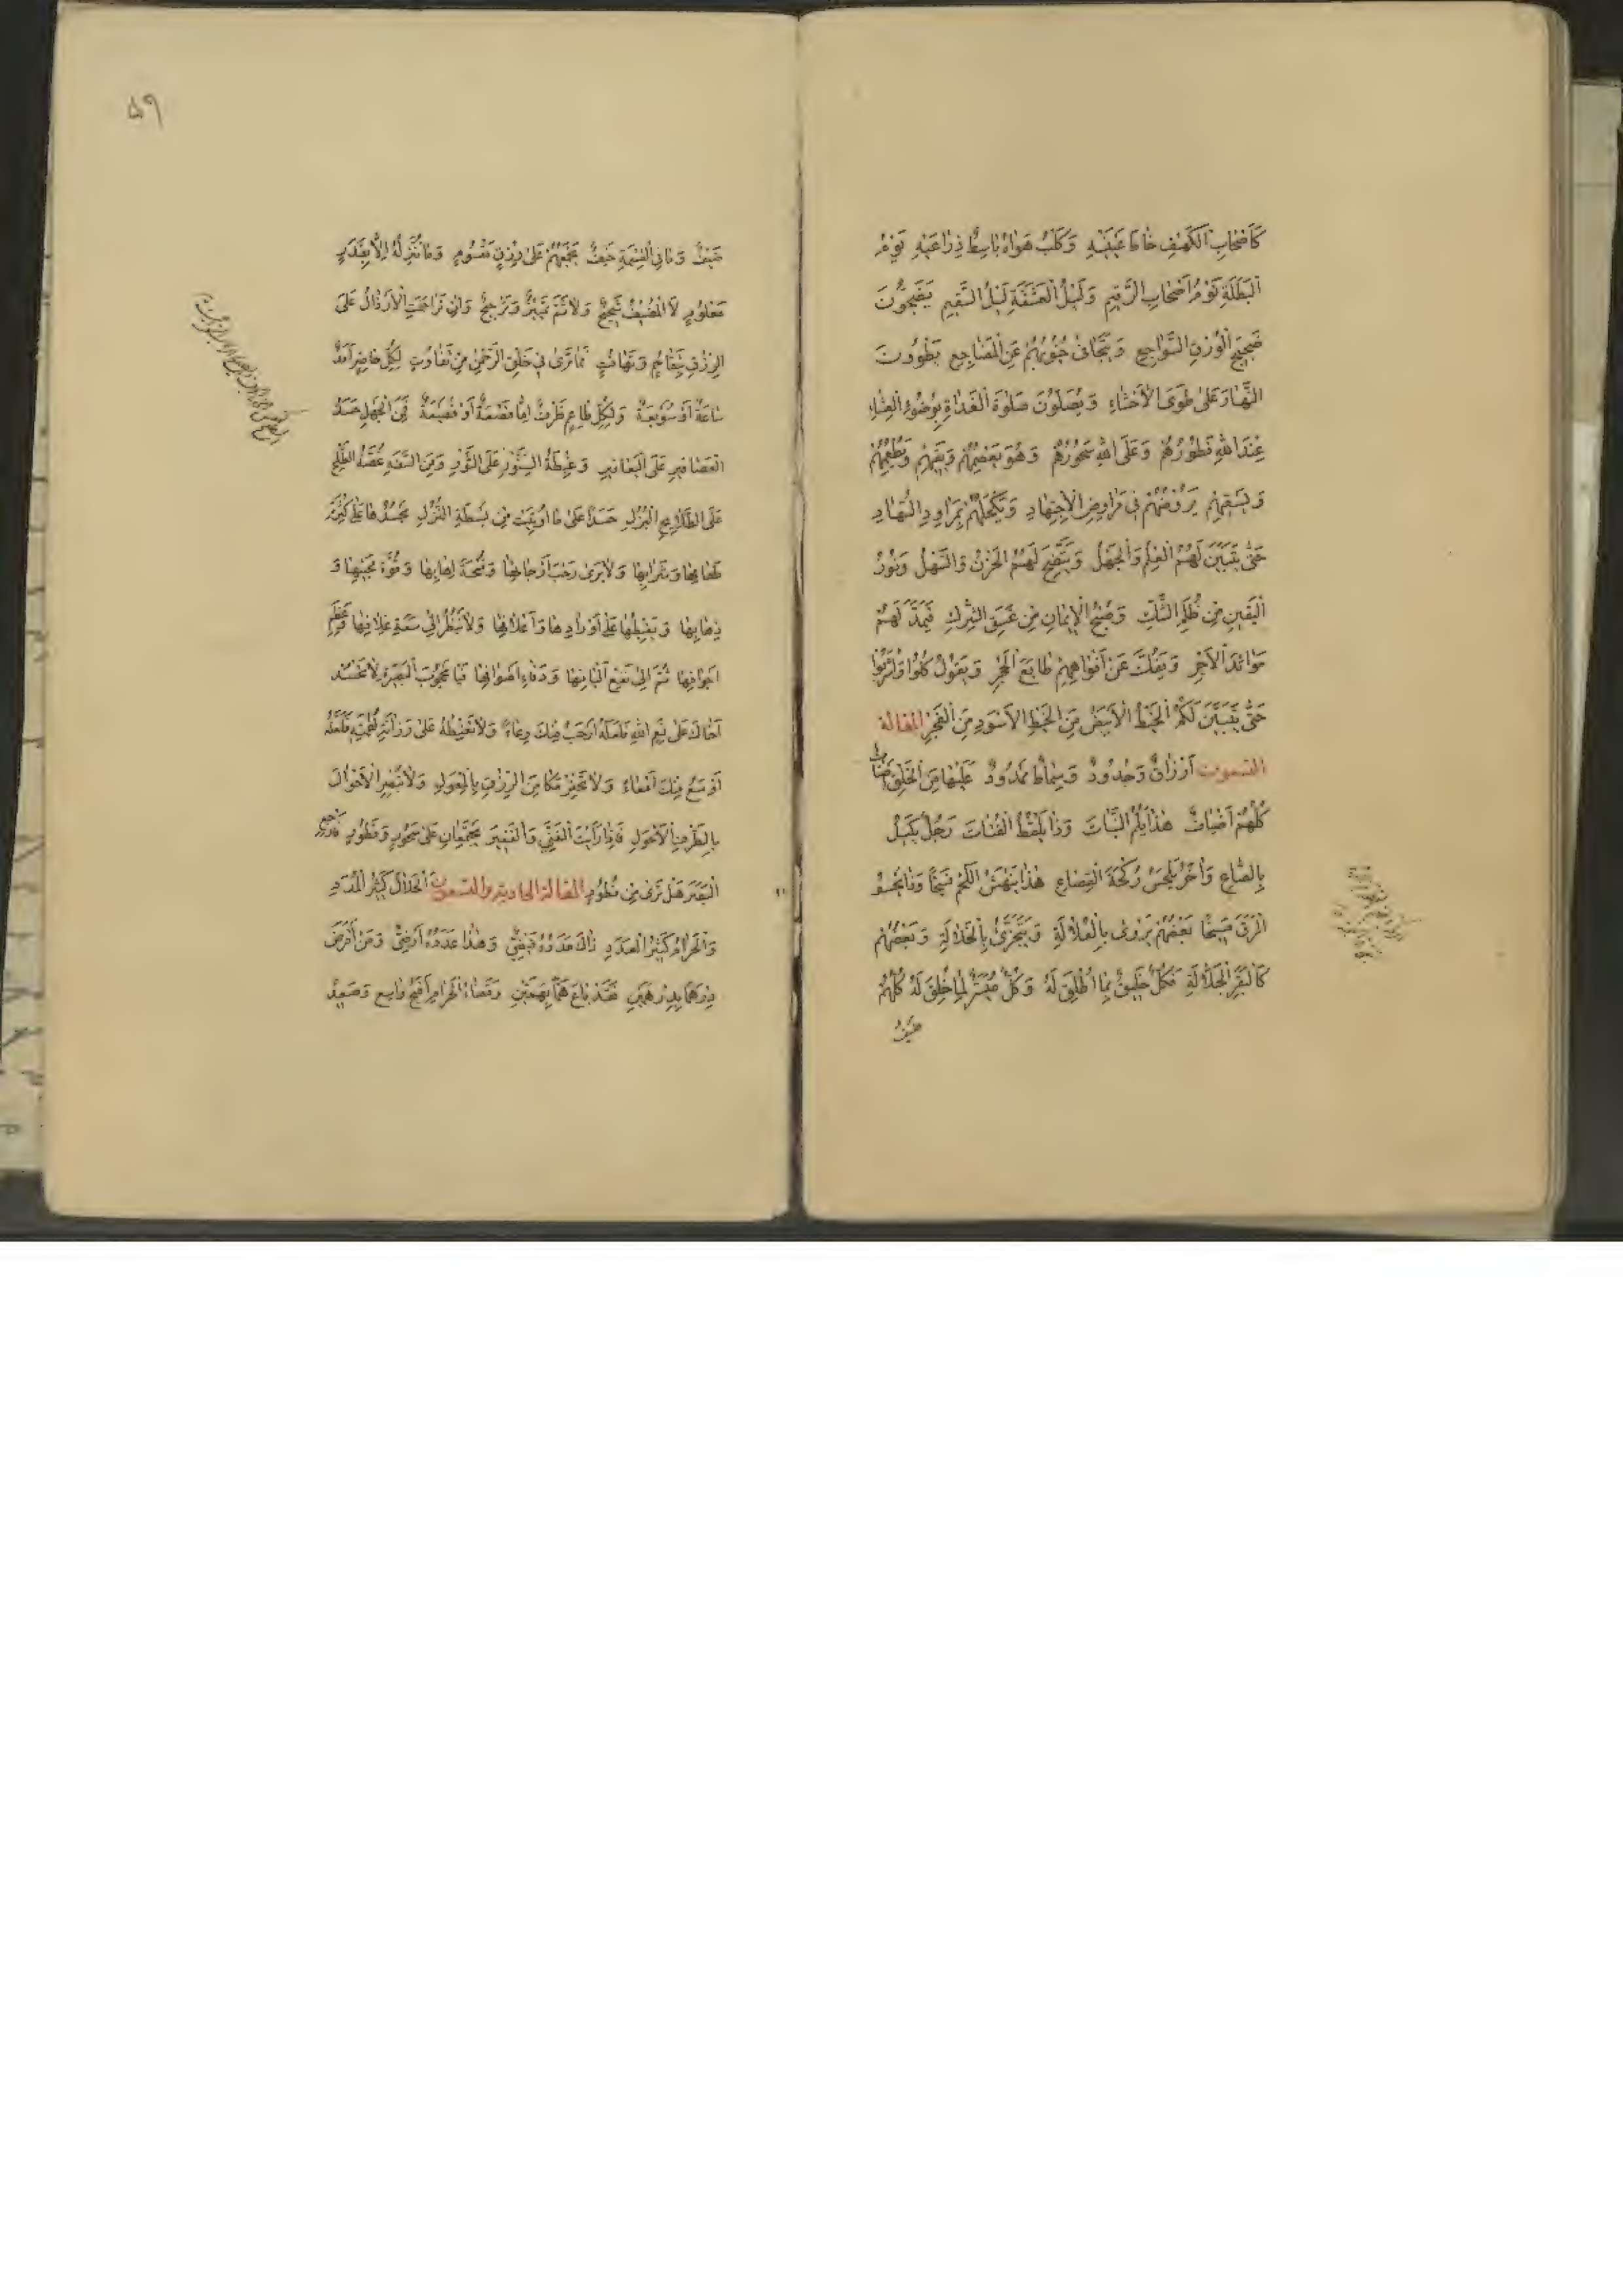 كَاَصْحَابِ الْكَهْفِ خَاطَ عَيْنَيْهِ وَكَلْبُ هَوَاهُ بَاسِطٌ ذِرَاعَيْهِ يَوْمُ
الْبَطَلَةِ يَوْمُ اَصْحَابِ الرَّقِيمِ وَلَيْلُ الْعَشَقَةِ لَيْلُ السَّقِيمِ يَضِجُّونَ
ضَجِيجَ الْوُرْقِ السَّوَاجِعِ وَيَتَجَافٰى جُنُوبُهُمْ عَنِ الْمَضَاجِعِ يَطْوُونَ
النَّهَارَ عَلٰى طَوَى الْاَحْشَاءِ وَيُصَلُّونَ صَلٰوةَ الْغَدَاةِ بِوُضُوءِ الْعِشَاءِ
عِنْدَ اللّٰهِ فَطُورُهُمْ وَعَلَى اللّٰهِ سَحُورُهُمْ وَهُوَ يَعْصِمُهُمْ وَيَقِيهِمْ وَيُطْعِمُهُمْ
وَيَسْقِيهِمْ يَرُوضُهُمْ فِى مَرَاوِضِ الْاِجْتِهَادِ وَيَكْحَلُهُمْ بِمَرَاوِدِ السُّهَادِ
حَتّٰى يَتَبَيَّنَ لَهُمُ الْعِلْمُ وَالْجَهْلُ وَيَتَّضِحَ لَهُمُ الْحَزْنُ وَالسَّهْلُ وَنُورُ
الْيَقِينِ مِنْ ظُلَمِ الشَّكِّ وَصُبْحُ الْاِيمَانِ مِنْ غَسَقِ الشِّرْكِ فَيَمُدُّ لَهُمْ
مَوَائِدَ الْاَجْرِ وَيَفُكُّ عَنْ اَفْوَاهِهِمْ طَابَعَ الْحَجْرِ وَيَقُولُ كُلُوا وَاشْرَبُوا
حَتّٰى يَتَبَيَّنَ لَكُمُ الْخَيْطُ الْاَبْيَضُ مِنَ الْخَيْطِ الْاَسْوَدِ مِنَ الْفَجْرِ المقالة
التسعون اَرْزَاقٌ وَجُدُودٌ وَسِمَاطٌ مَمْدُودٌ عَلَيْهَا مِنَ الْخَلْقِ
كُلُّهُمْ اَضْيَافٌ هٰذَا يَلُمُّ اللُّبَابَ وَذَا يَلْقُطُ الْفُتَاتَ رَجُلٌ يَكِيلُ
بِالصَّاعِ وَاٰخَرُ يَلْحَسُ رُكْحَةَ الْقِصَاعِ هٰذَا يَنْهَشُ اللَّحْمَ وَذَا يَحْسُو
الْمَرَقَ بَعْضُهُمْ يَرْوٰى بِالْعُلَالَةِ وَيَتَجَزّٰى بِالْخُلَالَةِ وَبَعْضُهُمْ
كَالْبَقَرِ الْجَلَّالَةِ فَكُلٌّ خَلِيقٌ بِمَا اُطْلِقَ لَهُ وَكُلٌّ مُيَسَّرٌ لِمَا خُلِقَ لَهُ كُلُّهُمْ
ضَيْفٌ
٥٩
ضَيْفٌ وَمَا فِى الْقِسْمَةِ حَيْفٌ يَجْمَعُهُمْ عَلٰى رِزْقٍ مَقْسُومٍ وَمَا نُنَزِّلُهُ اِلَّا بِقَدَرٍ
مَعْلُومٍ لَا الْمُضِيفُ شَحِيحٌ وَلَا ثَمَّ تَمْيِيزٌ وَتَرْجِيحٌ وَاِنْ تَزَاحَمَتِ الْاَرْذَالُ عَلَى
الرِّزْقِ وَتَهَافُتٍ مَا تَرٰى فِى خَلْقِ الرَّحْمٰنِ مِنْ تَفَاوُتٍ لِكُلِّ حَاضِرٍ اَمَدٌ
سَاعَةٌ اَوْ سُوَيْعَةٌ وَلِكُلِّ طَاعِمٍ ظَرْفٌ اِمَّا قَصْعَةٌ اَوْ قُصَيْعَةٌ فَمِنَ الْجَهْلِ حَسَدُ
الْعَصَافِيرِ عَلَى الْيَعَافِيرِ وَغِبْطَةُ السِّنَّوْرِ عَلَى الثَّوْرِ وَمِنَ السَّفَهِ غُصَّةُ الطُّلَّحِ
عَلَى الطَّلَايِحِ الْبُزَّلِ حَسَدًا عَلٰى مَا اُوتِيَتْ مِنْ بَسْطَةِ النُّزُلِ يَحْسُدُهَا عَلٰى كَثْرَةِ
طَعَامِهَا وَشَرَابِهَا وَلَا يَرٰى رَحْبَ اَرْجَائِهَا وَفُسْحَةَ اِهَابِهَا وَقُوَّةَ مَجِيئِهَا وَ
ذَهَابِهَا وَيَغْبِطُهَا عَلٰى اَوْرَادِهَا وَاَعْلَافِهَا وَلَا يَنْظُرُ اِلٰى سَعَةِ غِلَافِهَا وَعِظَمِ
اَجْوَافِهَا ثُمَّ اِلٰى نَفْعِ اَلْبَانِهَا وَدِفَاءِ اَصْوَافِهَا فَيَا مَحْجُوبَ الْبَصِيرَةِ لَا تَحْسُدْ
اَخَاكَ عَلٰى نِعَمِ اللّٰهِ فَلَعَلَّهُ اَرْحَبُ مِنْكَ وِعَاءً وَلَا تَغْبِطْهُ عَلٰى لُقْمَتِهِ فَلَعَلَّهُ
اَوْسَعُ مِنْكَ اَمْعَاءً وَلَا مِنَ الرِّزْقِ وَلَا تُبْصِرِ الْاَحْوَالَ
بِالطَّرْفِ الْاَحْوَلِ فَاِذَا رَاَيْتَ الْغَنِىَّ وَالْفَقِيرَ يَجْتَمِعَانِ عَلٰى سَحُورٍ وَفَطُورٍ فَارْجِعِ
الْبَصَرَ هَلْ تَرٰى مِنْ فُطُورٍ المقالة الحادية والتسعون اَلْحَلَالُ كَثِيرُ الْمَدَدِ
وَالْحَرَامُ كَثِيرُ الْعَدَدِ ذَاكَ مَدَدُهُ فَيْضِىٌّ وَهٰذَا عَدَدُهُ اَرْضِىٌّ وَمَنْ اَقْرَضَ
دِرْهَمًا بِدِرْهَمَيْنِ فَقَدْ بَاعَ وَفَضَاءُ الْحَرَامِ اَفْيَحُ وَاسِعٌ وَصَعِيدٌ